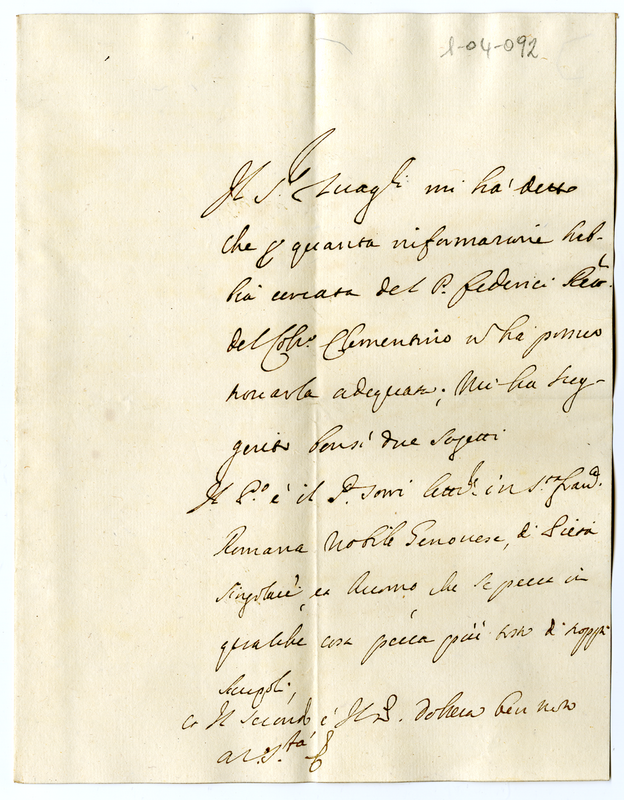 1-04-092
Il S.r mi ha' detto
che p quanta informazione heb-
bia cercata del P. Federici Rett.
del Coll.o Clementino ñ ha potuto
trovarla adequata; Mi ha sug-
gerito bensi due sogetti
Il P.o è il P. in S.ta Franc.
Romana Nobile Genovese, di Pietà
singolare, ed huomo che se pecca in
qualche cosa pecca più tosto di troppi
scrupoli,
Il secondo è Il ben noto
a V.S.tà